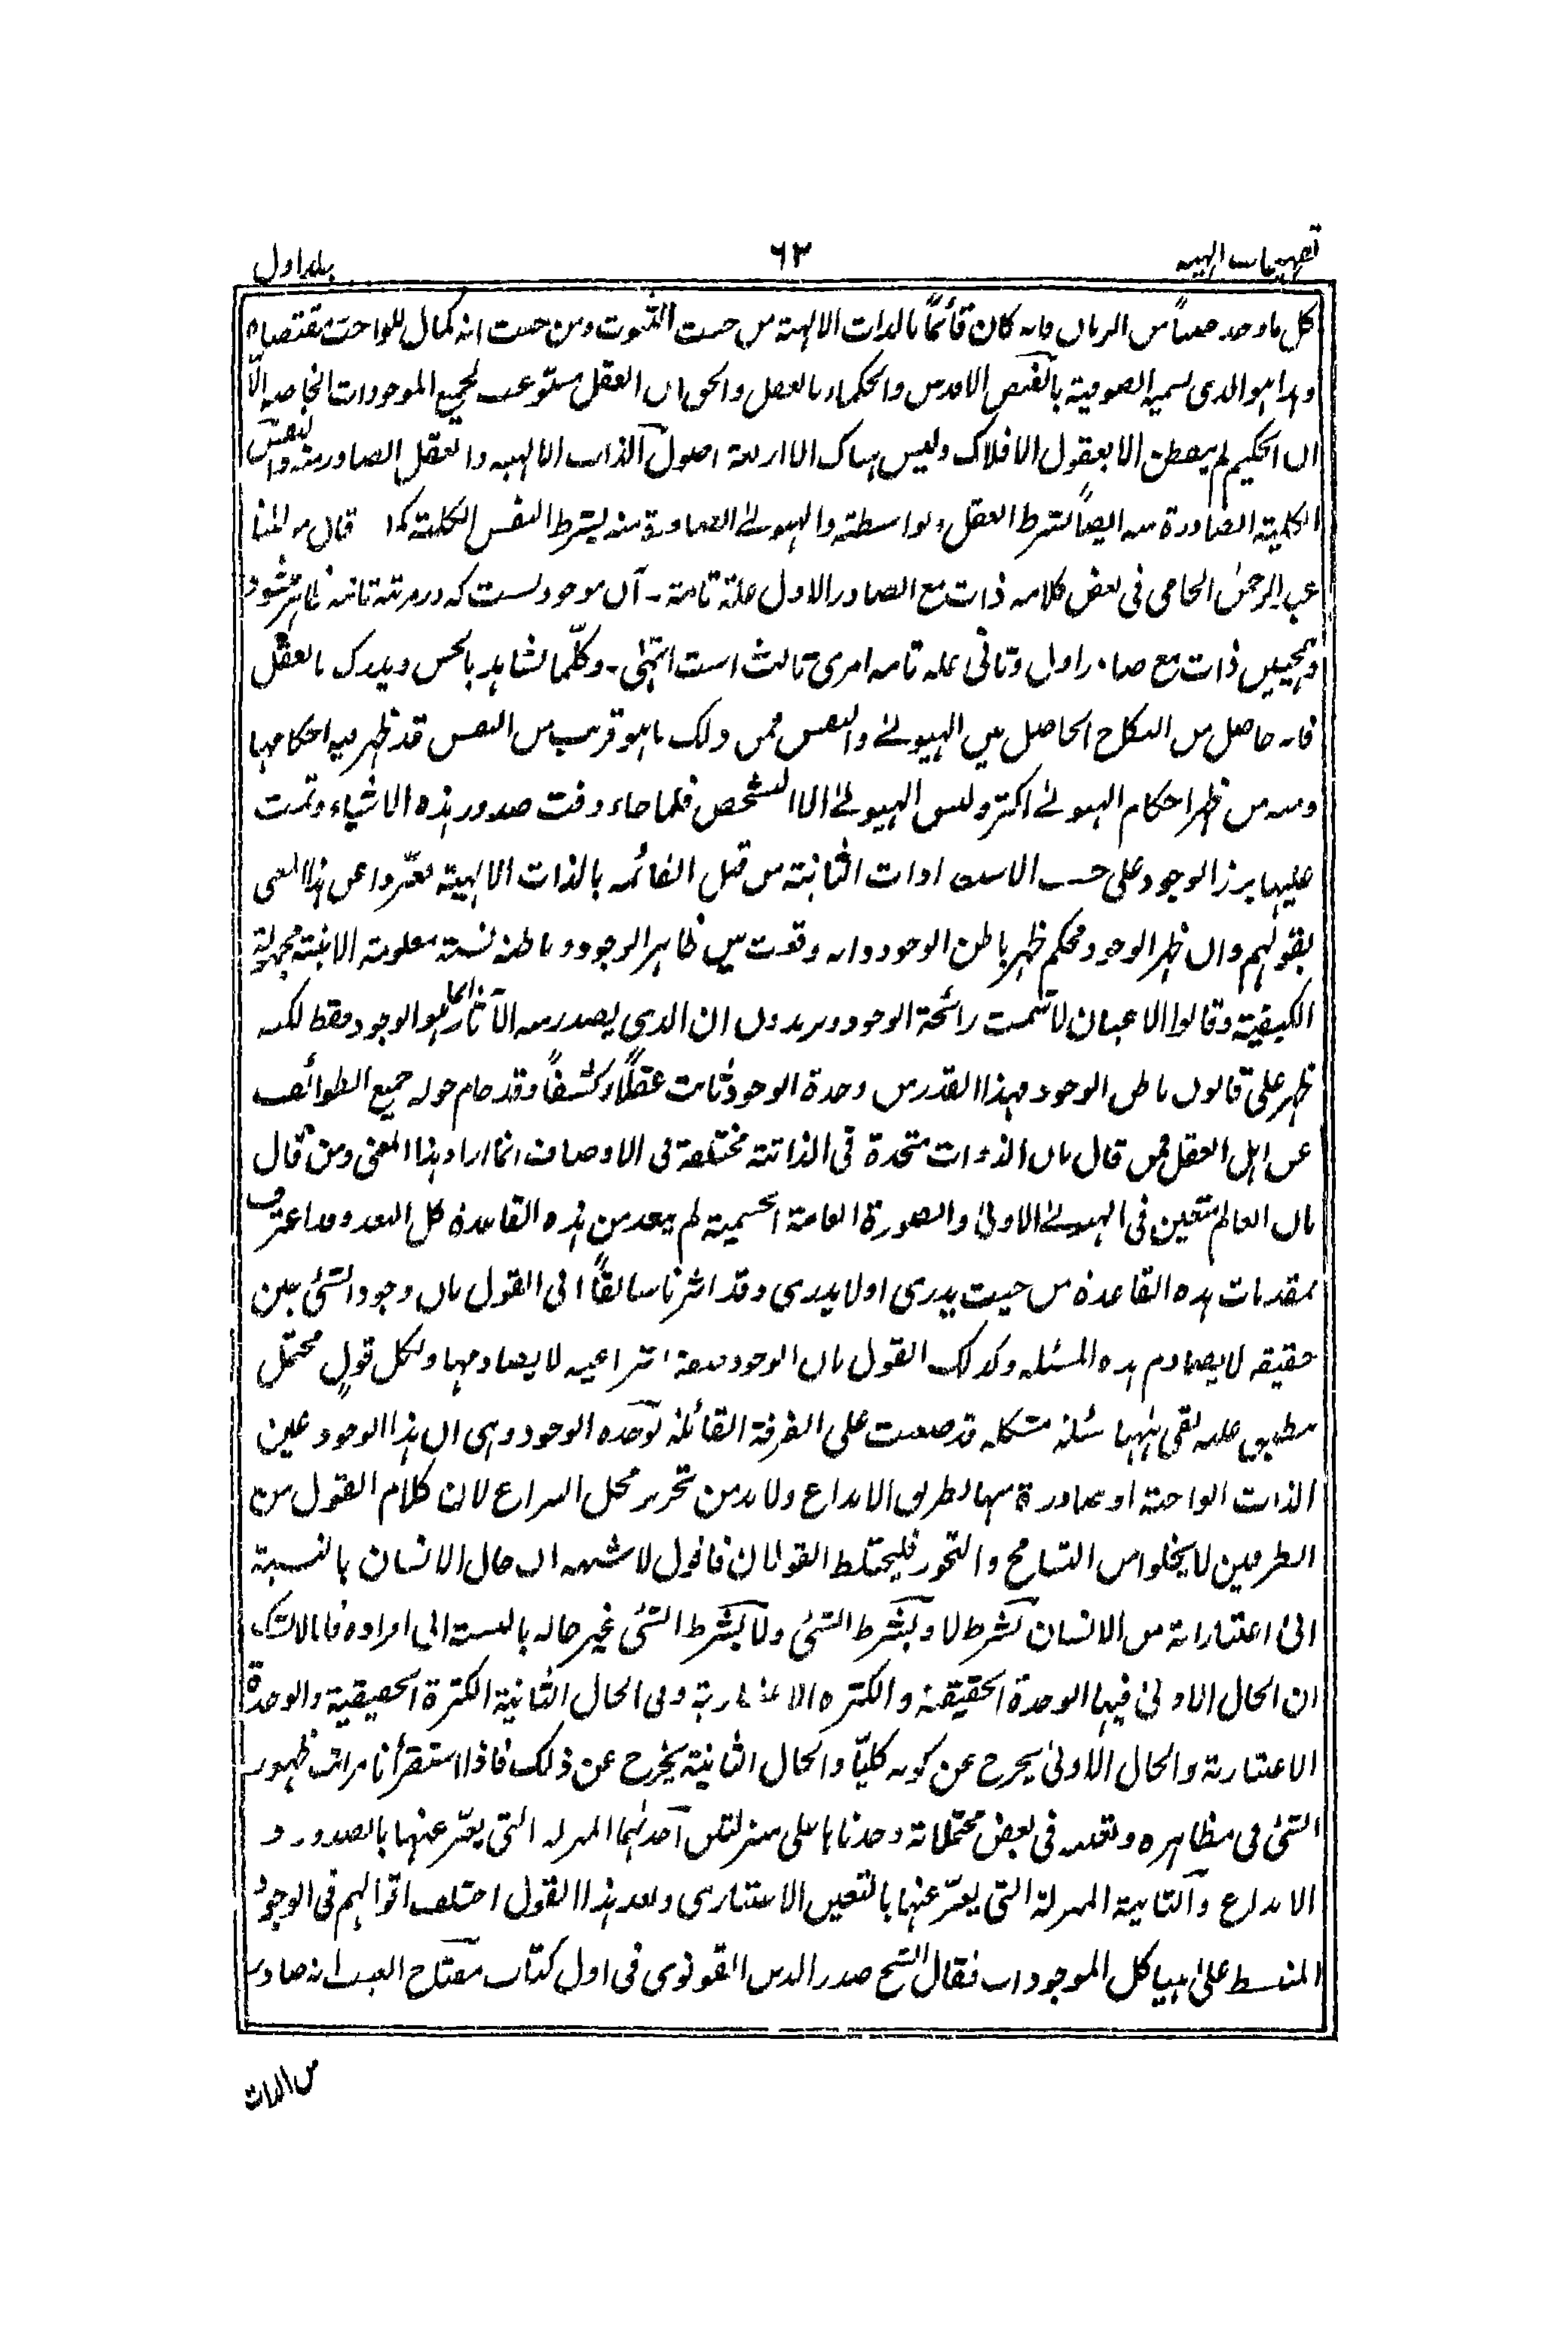 تفهیمات الهیه ۶۳ جلد اول
كل ما وجد من الزمان فانه كان قائمًا بالذات الالهية من حيث الثبوت ومن حيث انه كمال للواجب مقتضاه
وهذا هو الذى يسميه الصوفية بالفيض الاقدس والحكماء بالعقل والحق ان العقل مستوعب لجميع الموجودات الخاصية الّا
ان الحكيم لم يفطن الا بعقول الافلاك وليس هناك الا اربعة اصول الذات الالهية والعقل الصادر منه والنفس
الكلية الصادرة منه ايضًا بشرط العقل وبواسطته والهيولى الصادرة منه بشرط النفس الكلية كما قال مولانا
عبد الرحمن الجامى فى بعض كلامه ذات مع الصادر الاول علة تامة - آن موجود است كه در مرتبه ثانيه ظاهر شود
وهمچنين ذات مع صادر اول وثانى علة تامه امرى ثالث است انتهى - وكلّما نشاهد بالحس ويدرك بالعقل
فانه حاصل من النكاح الحاصل بين الهيولى والنفس فمن ذلك ما هو قريب من النفس قد ظهر فيه احكامها
ومنه من ظهر احكام الهيولى اكثر وليس الهيولى الا التشخص فلما جاء وقت صدور هذه الاشياء وتمت
عليها برز الوجود على حسب الاستعدادات الثابتة من قبل القائمة بالذات الالهية فعبّروا عن هذا المعنى
بقولهم وان ظهر الوجود فبحكم ظهر باطن الوجود وانه وقعت بين ظاهر الوجود وباطنه نسبة معلومة الانية مجهولة
الكيفية وقالوا الاعيان لا شمت رائحة الوجود ويريدون ان الذى يصدر منه الآثار انما هو الوجود فقط لكنه
ظهر على قانون باطن الوجود فهذا القدر من وحدة الوجود ثابت عقلًا وكشفًا وقد حام حوله جميع الطوائف
عن اهل العقل فمن قال بان الذوات متحدة فى الذاتية مختلفة فى الاوصاف انما اراد هذا المعنى ومن قال
بان العالم متعين فى الهيولى الاولى والصورة العامة الجسمية لم يبعد من هذه القاعدة كل البعد وقد اعترف
بمقدمات هذه القاعدة من حيث يدرى او لا يدرى وقد اشرنا سابقًا الى القول بان وجود الشئ عين
حقيقته لا يصادم هذه المسئلة وكذلك القول بان الوجود صفة انتزاعية لا يصادمها ولكل قولٍ محتمل
ينطبق عليه بقى ههنا مسئلة مشكله قد صعبت على الفرقة القائلة بوحدة الوجود وهى ان هذا الوجود عين
الذات الواجبة او صادرة منها بطريق الابداع ولا بد من تحرير محل النزاع لان كلام القول من
الطرفين لا يخلوا من التسامح والتجوز فليختلط القولان فاقول لا شبهه ان حال الانسان بالنسبة
الى اعتباراته من الانسان بشرط لا وبشرط الشئ ولا بشرط الشئ غير حاله بالنسبة الى افراده فانا لا نشك
ان الحال الاولى فيها الوحدة الحقيقية والكثره الاعتبارية وفى الحال الثانية الكثرة الحقيقية والوحدة
الاعتبارية والحال الاولى يخرج عن كونه كليًّا والحال الثانية يخرج عن ذلك فاذا استقرأنا مراتب ظهور
الشئ فى مظاهره وتعينه فى بعض محتملاته وجدناها على منزلتين احدٰهما المنزله التى يعبّر عنها بالصدور و
الابداع والثانية المنزلة التى يعبّر عنها بالتعين الاعتبارى وبعد هذا القول اختلف اقوالهم فى الوجود
المنبسط على هياكل الموجودات فقال الشيخ صدر الدين القونوى فى اول كتاب مفتاح الغيب انه صادر
من الذات